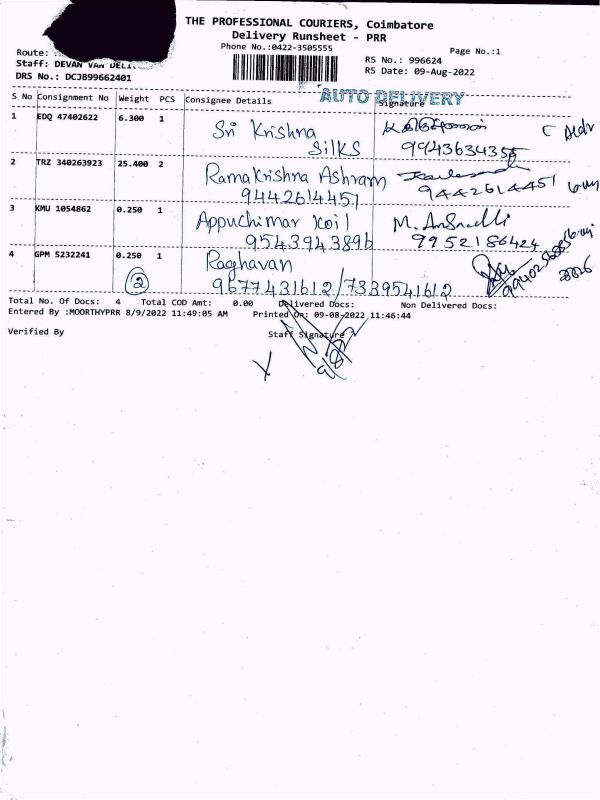 THE PROFESSIONAL COURIERS, Coimbatore
Delivery Runsheet - PRR
Phone No.:0422-3505555
Page No.:1
Route:
Staff: DEVAN VAN
DRS No.: DCJB99662401
RS No.: 996624
RS Date: 09-Aug-2022
AUTO DELIVERY
S No Consignment No Weight PCS Consignee Details Signature
1 EDQ 47402622 6.300 1 Sri Krishna
Silks 9943634355
2 TRZ 340263923 25.400 2 Ramakrishna Ashram
9442614457 9442614451
3 KMU 1054862 0.250 1 Appuchimar Koil M.
9543943896 9952186424
4 GPM 5232241 0.250 1 Raghavan
2 9677431612/7339541612
Total No. Of Docs: 4 Total COD Amt: 0.00 Delivered Docs: Non Delivered Docs:
Entered By :MOORTHYPRR 8/9/2022 11:49:05 AM Printed On: 09-08-2022 11:46:44
Verified By Staff Signature